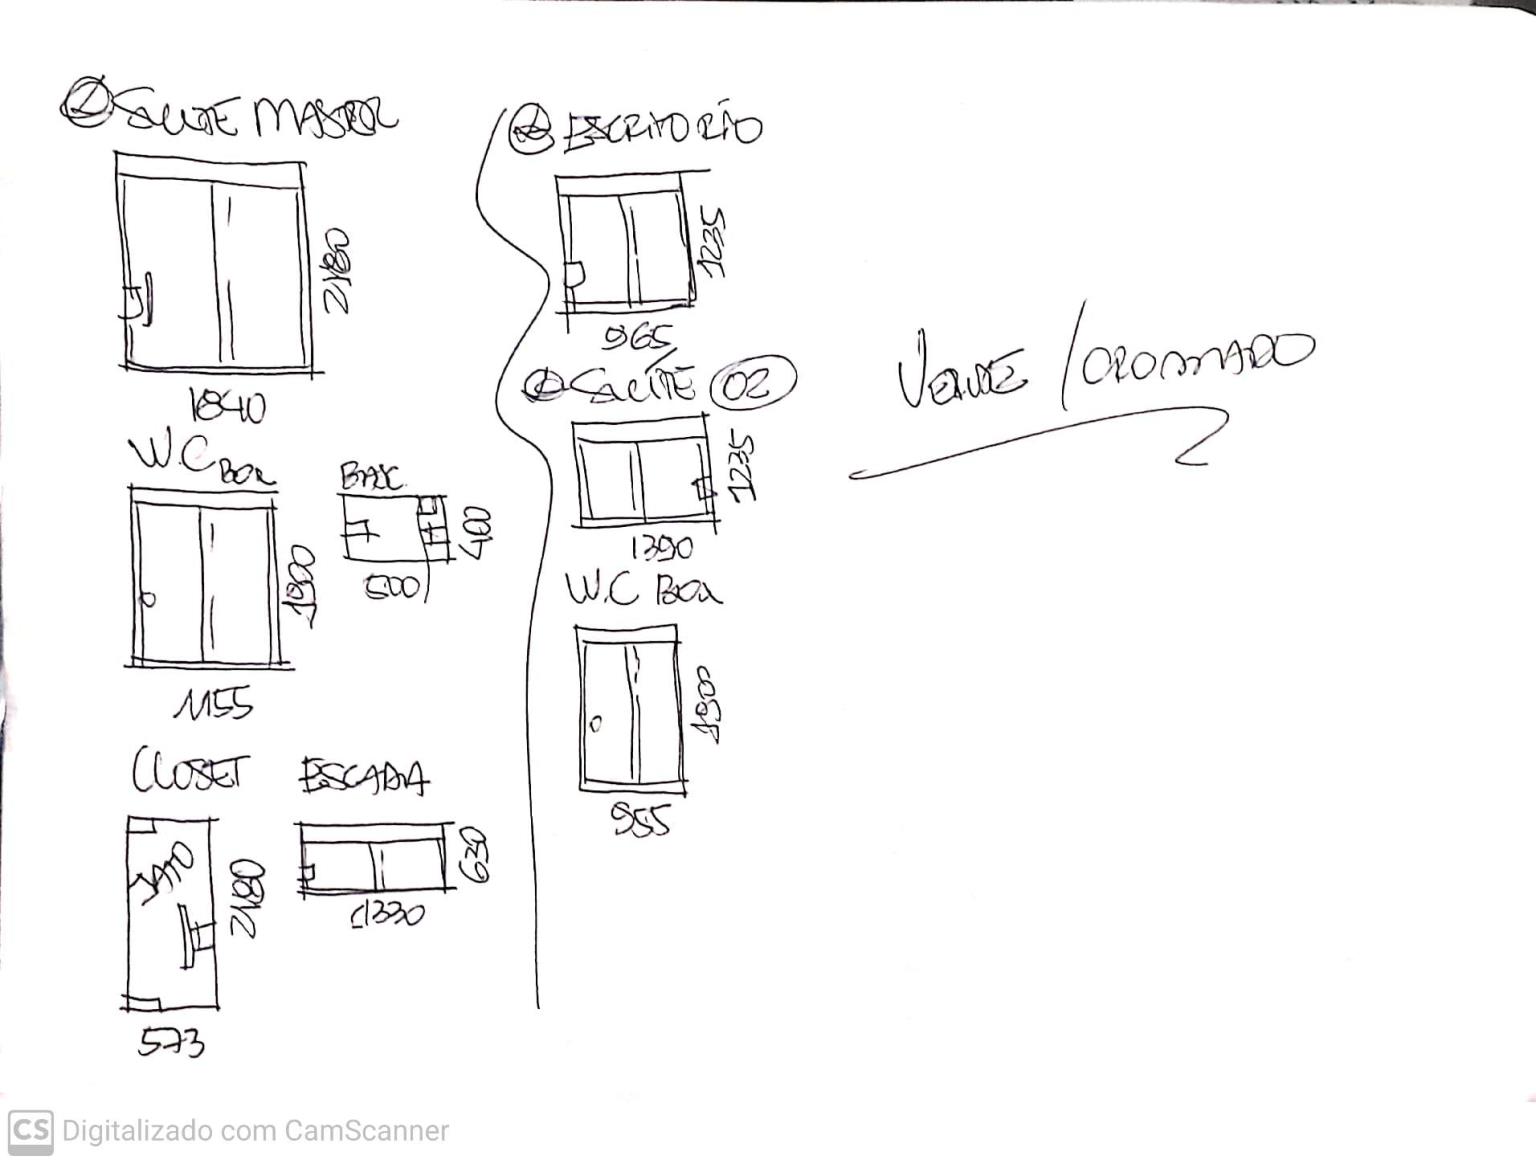 SUITE MASTER
2180
1840
W.C BOX
1900
1155
BASC.
400
500
CLOSET
JATO
2180
573
ESCADA
630
1330
ESCRITORIO
1235
965
SUITE 02
1235
1390
W.C BOX
1900
955
VERDE / CROMADO
CS Digitalizado com CamScanner